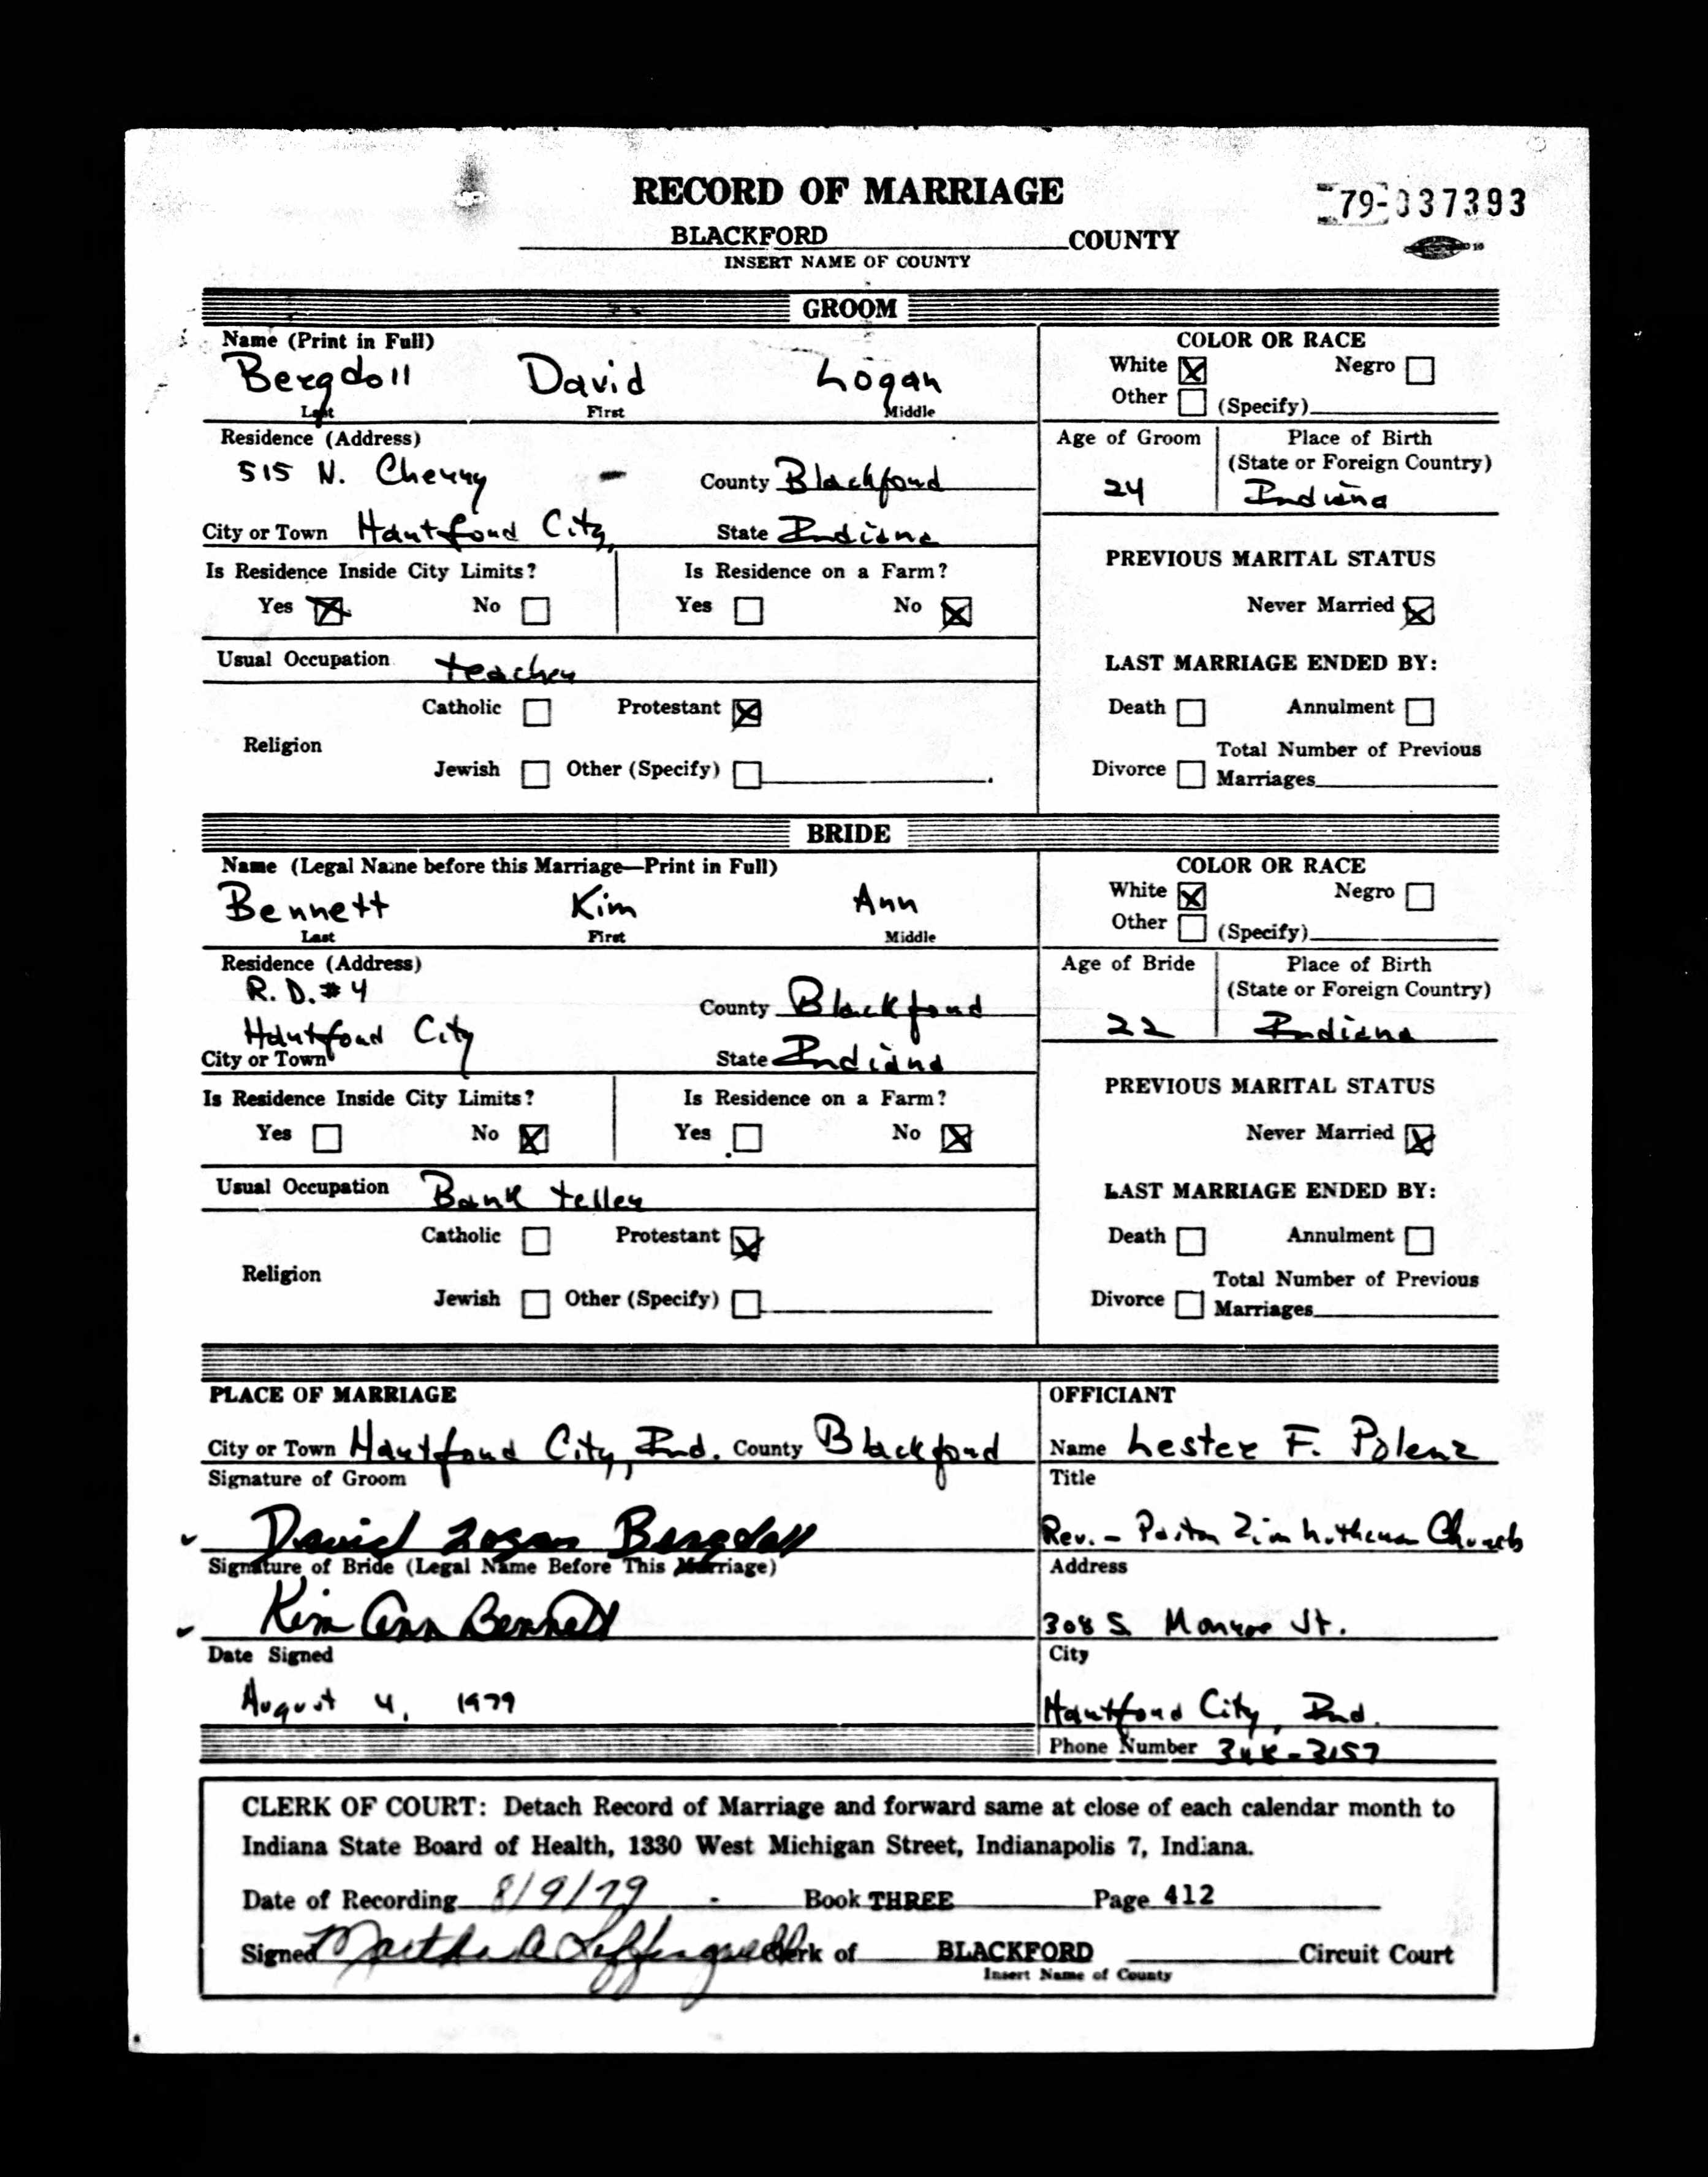 RECORD OF MARRIAGE
79-037393
BLACKFORD COUNTY
INSERT NAME OF COUNTY
GROOM
Name (Print in Full)
Bergdoll David Logan
Last First Middle
COLOR OR RACE
White ☒ Negro ☐
Other ☐ (Specify)
Residence (Address)
515 N. Cherry County Blackford
City or Town Hartford City, State Indiana
Age of Groom Place of Birth
(State or Foreign Country)
24 Indiana
Is Residence Inside City Limits? Is Residence on a Farm?
Yes ☒ No ☐ Yes ☐ No ☒
PREVIOUS MARITAL STATUS
Never Married ☒
Usual Occupation teacher
LAST MARRIAGE ENDED BY:
Catholic ☐ Protestant ☒
Religion
Jewish ☐ Other (Specify) ☐
Death ☐ Annulment ☐
Total Number of Previous
Divorce ☐ Marriages
BRIDE
Name (Legal Name before this Marriage—Print in Full)
Bennett Kim Ann
Last First Middle
COLOR OR RACE
White ☒ Negro ☐
Other ☐ (Specify)
Residence (Address)
R. D. #4 County Blackford
Hartford City
City or Town State Indiana
Age of Bride Place of Birth
(State or Foreign Country)
22 Indiana
Is Residence Inside City Limits? Is Residence on a Farm?
Yes ☐ No ☒ Yes ☐ No ☒
PREVIOUS MARITAL STATUS
Never Married ☒
Usual Occupation Bank teller
LAST MARRIAGE ENDED BY:
Catholic ☐ Protestant ☒
Religion
Jewish ☐ Other (Specify) ☐
Death ☐ Annulment ☐
Total Number of Previous
Divorce ☐ Marriages
PLACE OF MARRIAGE
City or Town Hartford City, Ind. County Blackford
Signature of Groom
David Logan Bergdoll
Signature of Bride (Legal Name Before This Marriage)
Kim Ann Bennett
Date Signed
August 4, 1979
OFFICIANT
Name Lester F. Polenz
Title
Rev. - Pastor Zion Lutheran Church
Address
308 S. Monroe St.
City
Hartford City, Ind.
Phone Number 348-3157
CLERK OF COURT: Detach Record of Marriage and forward same at close of each calendar month to
Indiana State Board of Health, 1330 West Michigan Street, Indianapolis 7, Indiana.
Date of Recording 8/9/79 Book THREE Page 412
Signed Martha A Leffingwell Clerk of BLACKFORD Circuit Court
Insert Name of County